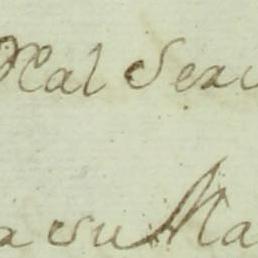 Real Serv
a en su Ma